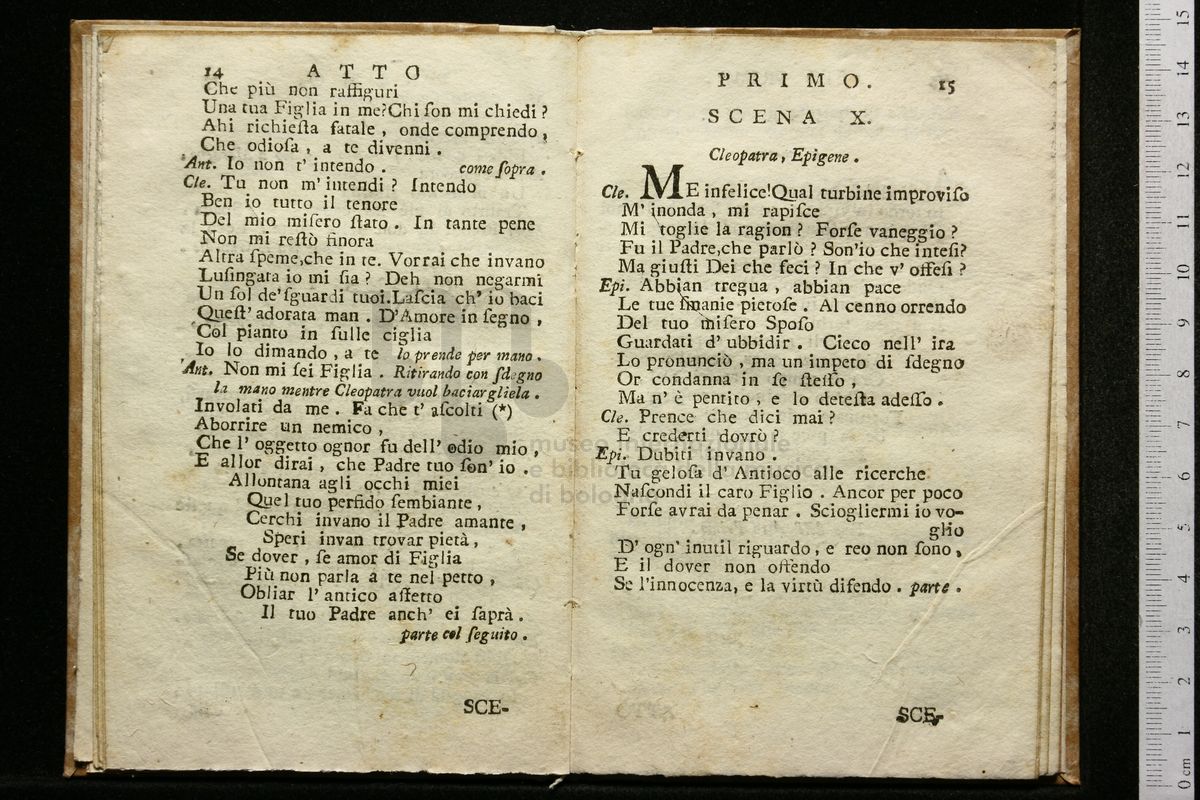 14 ATTO
Che più non raffiguri
Una tua Figlia in me? Chi ſon mi chiedi ?
Ahi richieſta fatale , onde comprendo ,
Che odioſa , a te divenni .
Ant. Io non t' intendo . come ſopra .
Cle. Tu non m' intendi ? Intendo
Ben io tutto il tenore
Del mio miſero ſtato . In tante pene
Non mi reſtò finora
Altra ſpeme,che in te. Vorrai che invano
Luſingata io mi ſia ? Deh non negarmi
Un ſol de' ſguardi tuoi.Laſcia ch' io baci
Queſt' adorata man . D'Amore in ſegno ,
Col pianto in ſulle ciglia
Io lo dimando , a te lo prende per mano .
Ant. Non mi ſei Figlia . Ritirando con ſdegno
la mano mentre Cleopatra vuol baciargliela .
Involati da me . Fa che t' aſcolti (*)
Aborrire un nemico ,
Che l' oggetto ognor fu dell' odio mio ,
E allor dirai , che Padre tuo ſon' io .
Allontana agli occhi miei
Quel tuo perfido ſembiante ,
Cerchi invano il Padre amante ,
Speri invan trovar pietà ,
Se dover , ſe amor di Figlia
Più non parla a te nel petto ,
Obliar l' antico affetto
Il tuo Padre anch' ei ſaprà .
parte col ſeguito .
SCE-
PRIMO. 15
SCENA X.
Cleopatra , Epigene .
Cle. ME infelice!Qual turbine improviſo
M' inonda , mi rapiſce
Mi toglie la ragion ? Forſe vaneggio ?
Fu il Padre,che parlò ? Son'io che inteſi?
Ma giuſti Dei che feci ? In che v' offeſi ?
Epi. Abbian tregua , abbian pace
Le tue ſmanie pietoſe . Al cenno orrendo
Del tuo miſero Spoſo
Guardati d' ubbidir . Cieco nell' ira
Lo pronunciò , ma un impeto di ſdegno
Or condanna in ſe ſteſſo ,
Ma n' è pentito , e lo deteſta adeſſo .
Cle. Prence che dici mai ?
E crederti dovrò ?
Epi. Dubiti invano .
Tu geloſa d' Antioco alle ricerche
Naſcondi il caro Figlio . Ancor per poco
Forſe avrai da penar . Sciogliermi io vo-
glio
D' ogn' inutil riguardo , e reo non ſono ,
E il dover non offendo
Se l'innocenza, e la virtù difendo . parte .
SCE-